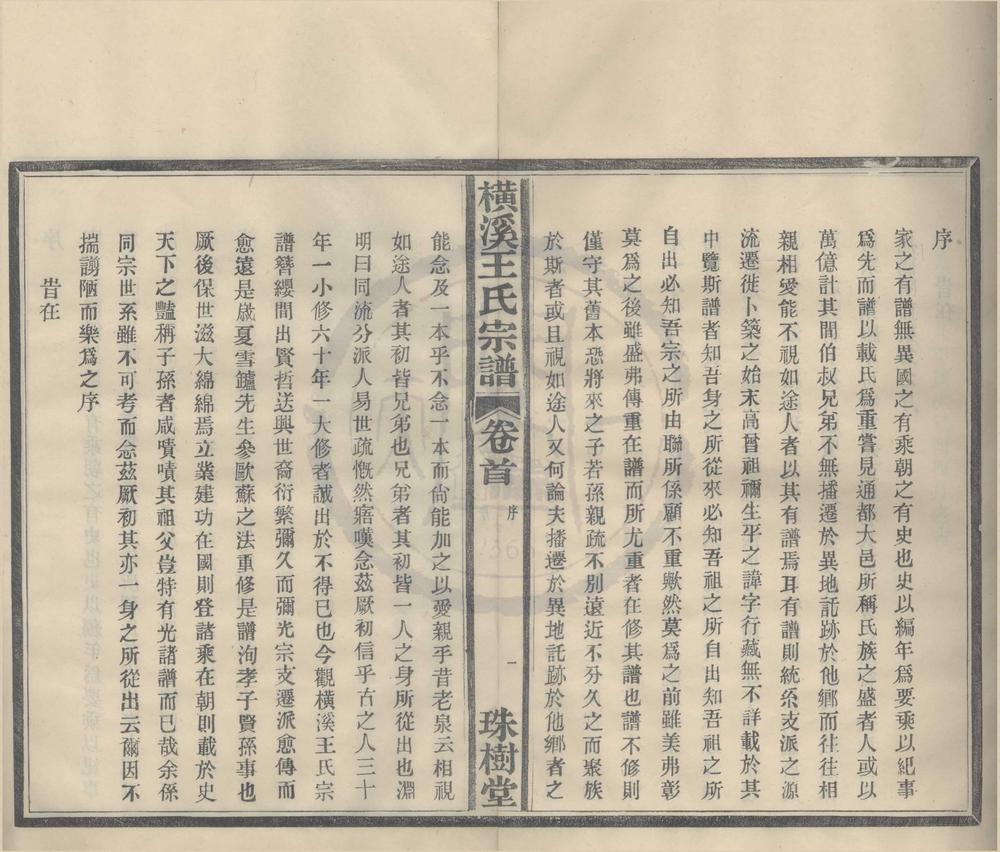 序
家之有譜無異國之有乘朝之有史也史以編年爲要乘以紀事
爲先而譜以載氏爲重嘗見通都大邑所稱氏族之盛者人或以
萬億計其間伯叔兄弟不無播遷於異地託跡於他鄉而往往相
親相愛能不視如途人者以其有譜焉耳有譜則統系支派之源
流遷徙卜築之始末高曾祖禰生平之諱字行藏無不詳載於其
中覽斯譜者知吾身之所從來必知吾祖之所自出知吾祖之所
自出必知吾宗之所由聯所係顧不重歟然莫爲之前雖美弗彰
莫爲之後雖盛弗傳重在譜而所尤重者在修其譜也譜不修則
僅守其舊本恐將來之子若孫親疏不別遠近不分久之而聚族
於斯者或且視如途人又何論夫播遷於異地託跡於他鄉者之
橫溪王氏宗譜
卷首
序
一
珠樹堂
能念及一本乎不念一本而尙能加之以愛親乎昔老泉云相視
如途人者其初皆兄弟也兄弟者其初皆一人之身所從出也淵
明曰同流分派人易世疏慨然寤嘆念茲厥初信乎古之人三十
年一小修六十年一大修者誠出於不得已也今觀橫溪王氏宗
譜簪纓間出賢哲迭興世裔衍繁彌久而彌光宗支遷派愈傳而
愈遠是歲夏雪鑪先生參歐蘇之法重修是譜洵孝子賢孫事也
厥後保世滋大綿綿焉立業建功在國則登諸乘在朝則載於史
天下之豔稱子孫者咸嘖嘖其祖父豈特有光諸譜而已哉余係
同宗世系雖不可考而念茲厥初其亦一身之所從出云爾因不
揣譾陋而樂爲之序
旹在